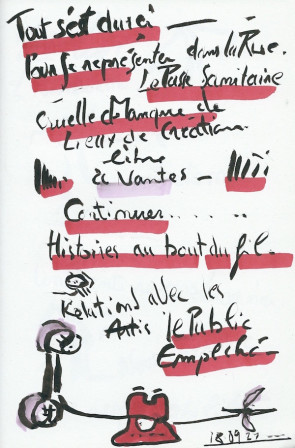 Tout s'est durci —
Pour se représenter dans la Rue.
Le Pass Sanitaire
Cruelle Manque de
Lieux de Création
libre
à Nantes —
Continuer.......
Histoires au bout du fil.
Relations avec les
le Public
Empêché —
18 09 21 ---